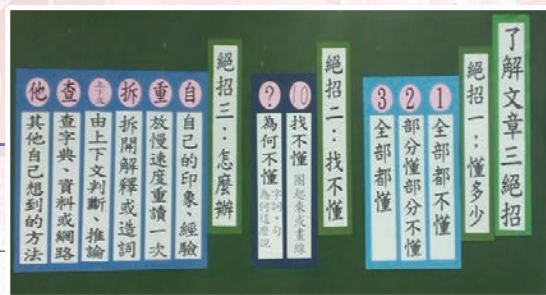 了解文章三絕招
絕招一：懂多少
1 全部都不懂
2 部分懂部分不懂
3 全部都懂
絕招二：找不懂
找不懂 圈起來或畫線
? 為何不懂 字、詞、句 為何這麼說
絕招三：怎麼辦
自 自己的印象、經驗
重 放慢速度重讀一次
拆 拆開解釋或造詞
上下文 由上下文判斷、推論
查 查字典、資料或網路
他 其他自己想到的方法